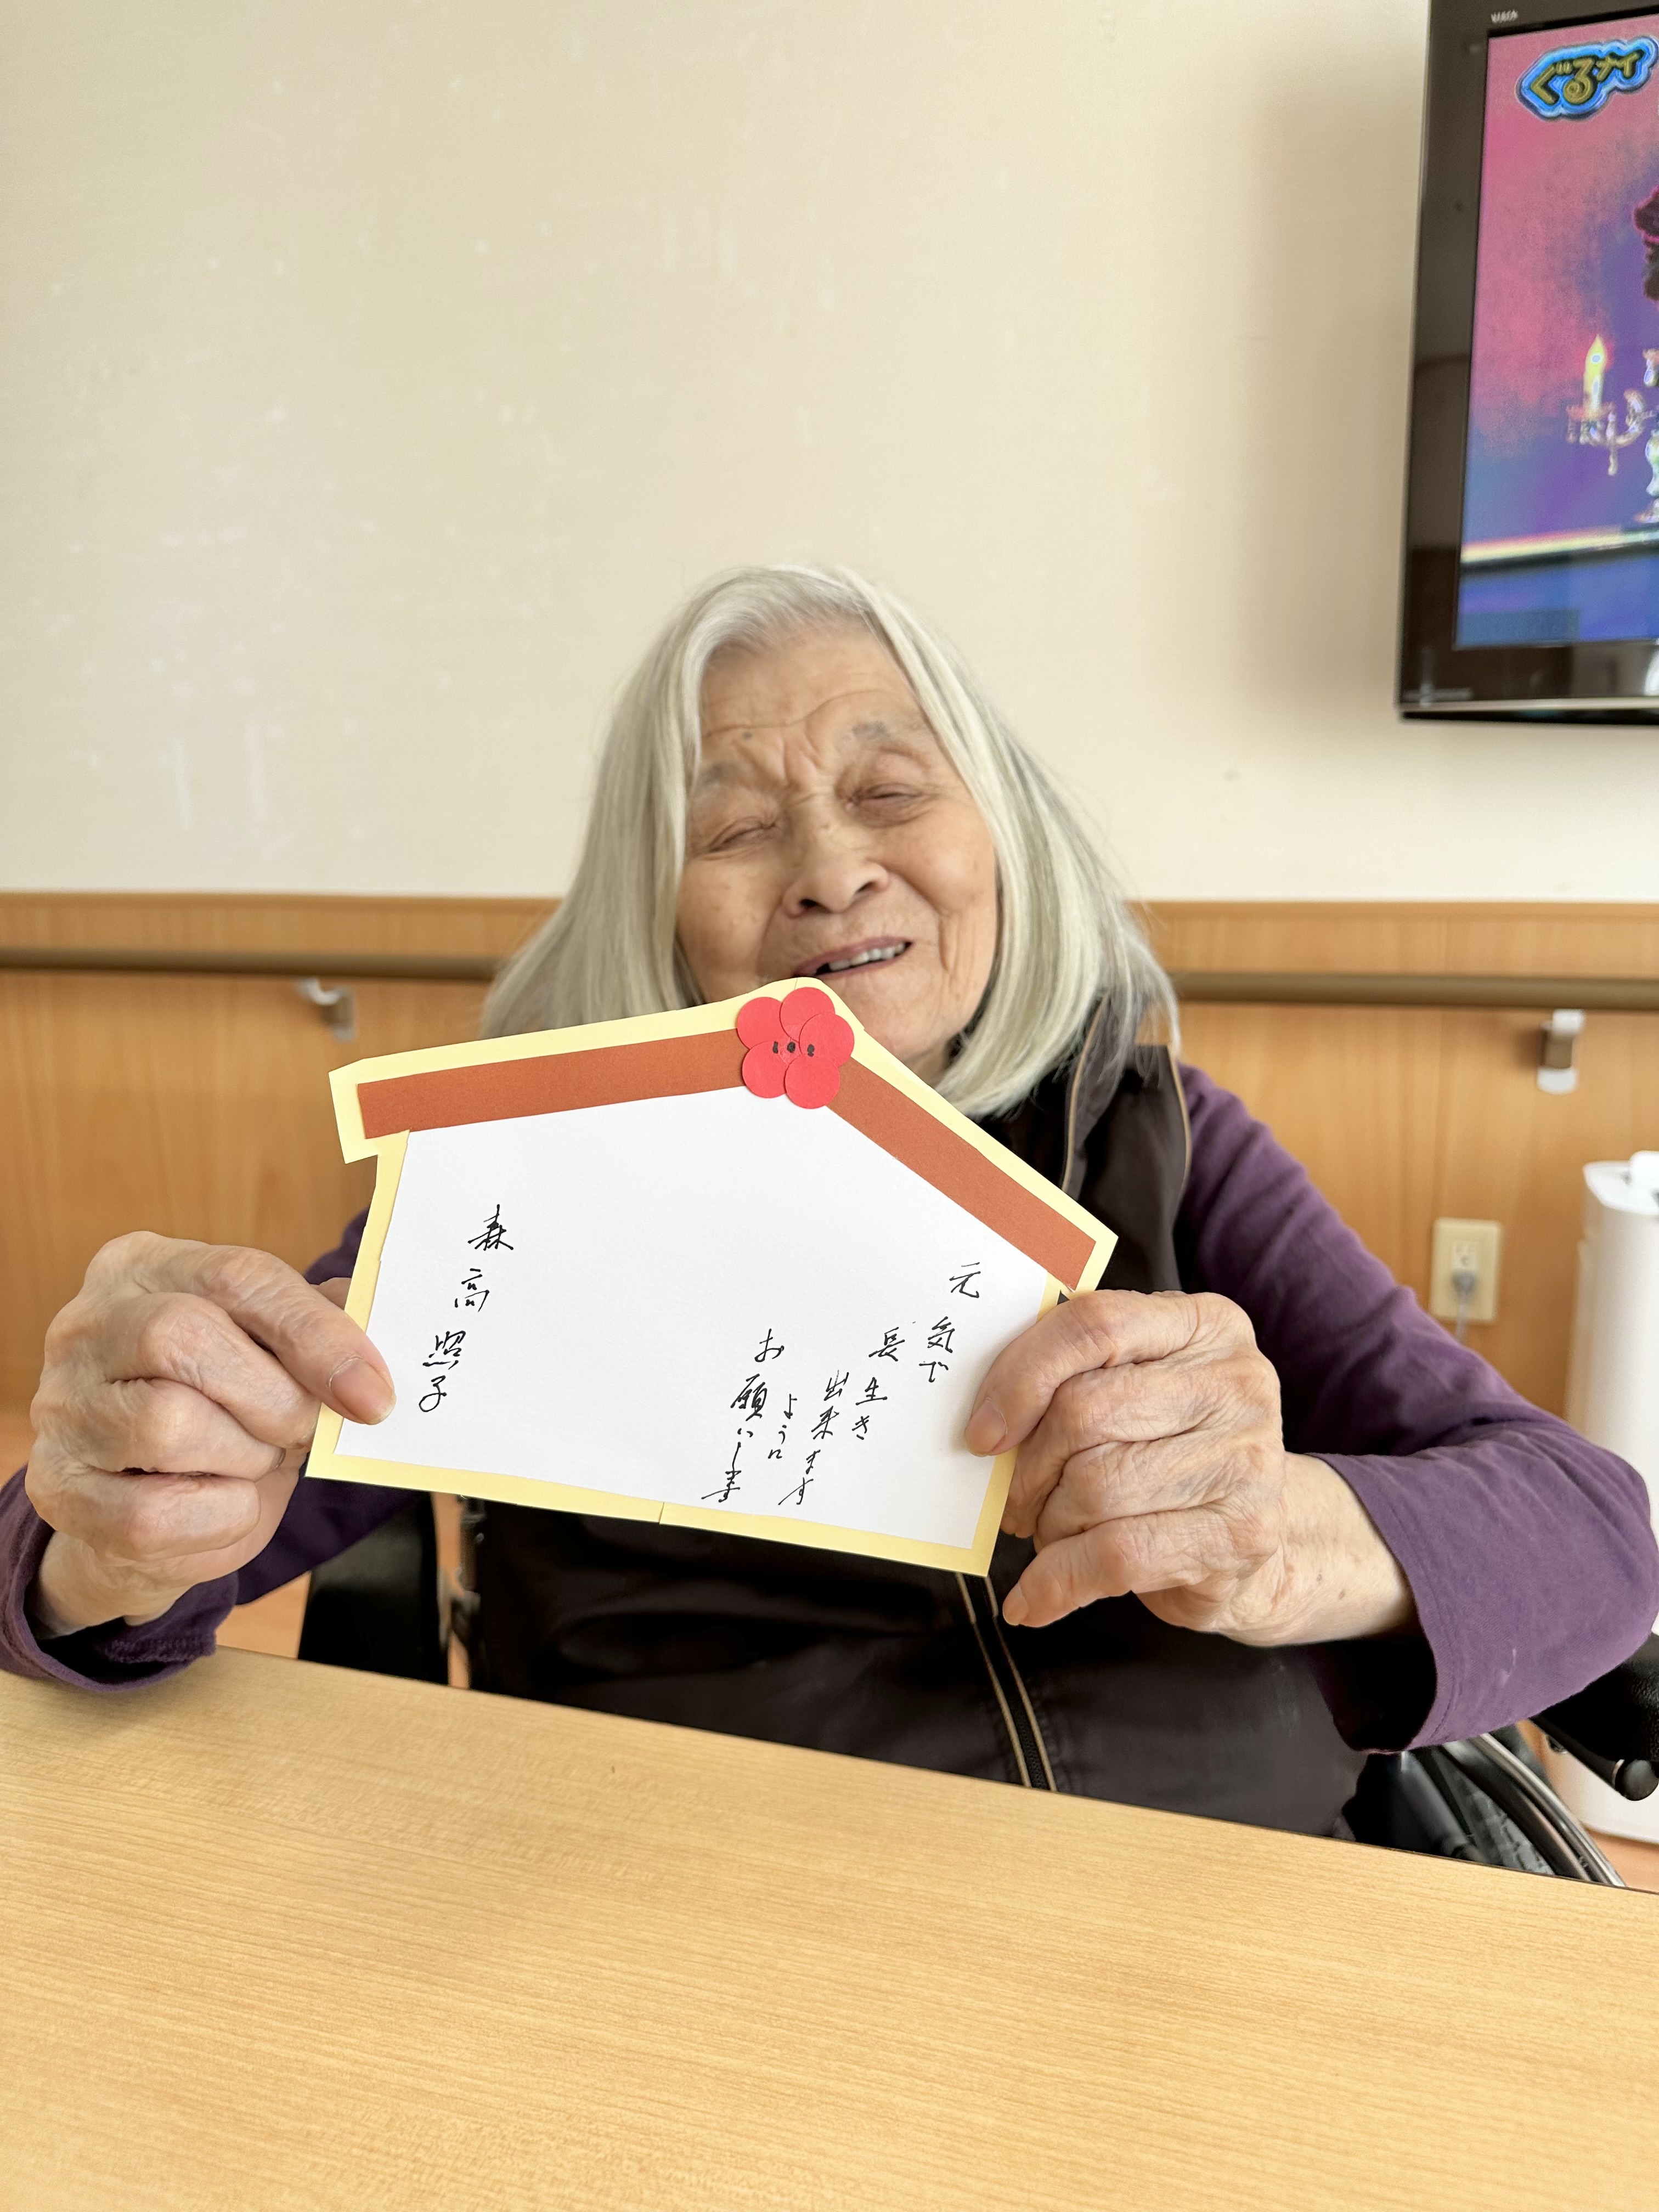 元気で
長生き
出来ます
ように
お願いします
森高照子
ぐるナイ